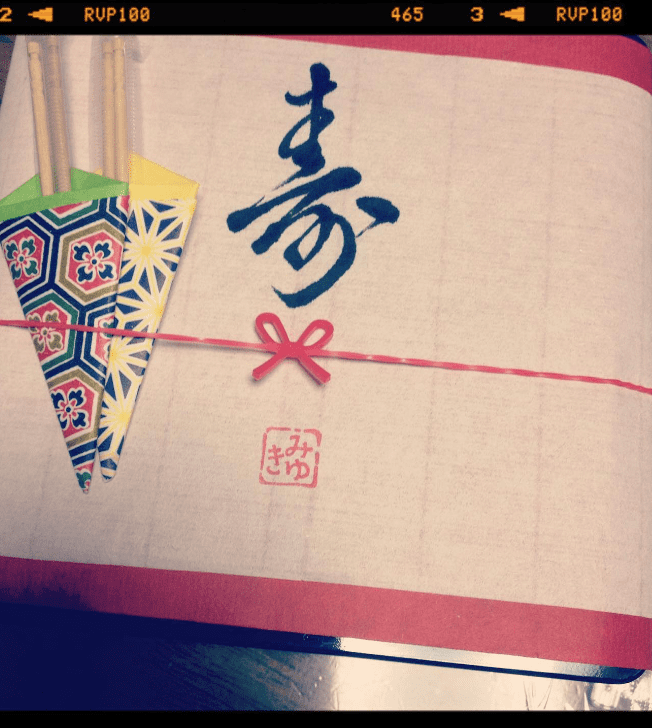 2 ◀ RVP100 465 3 ◀ RVP100
寿
みゆき